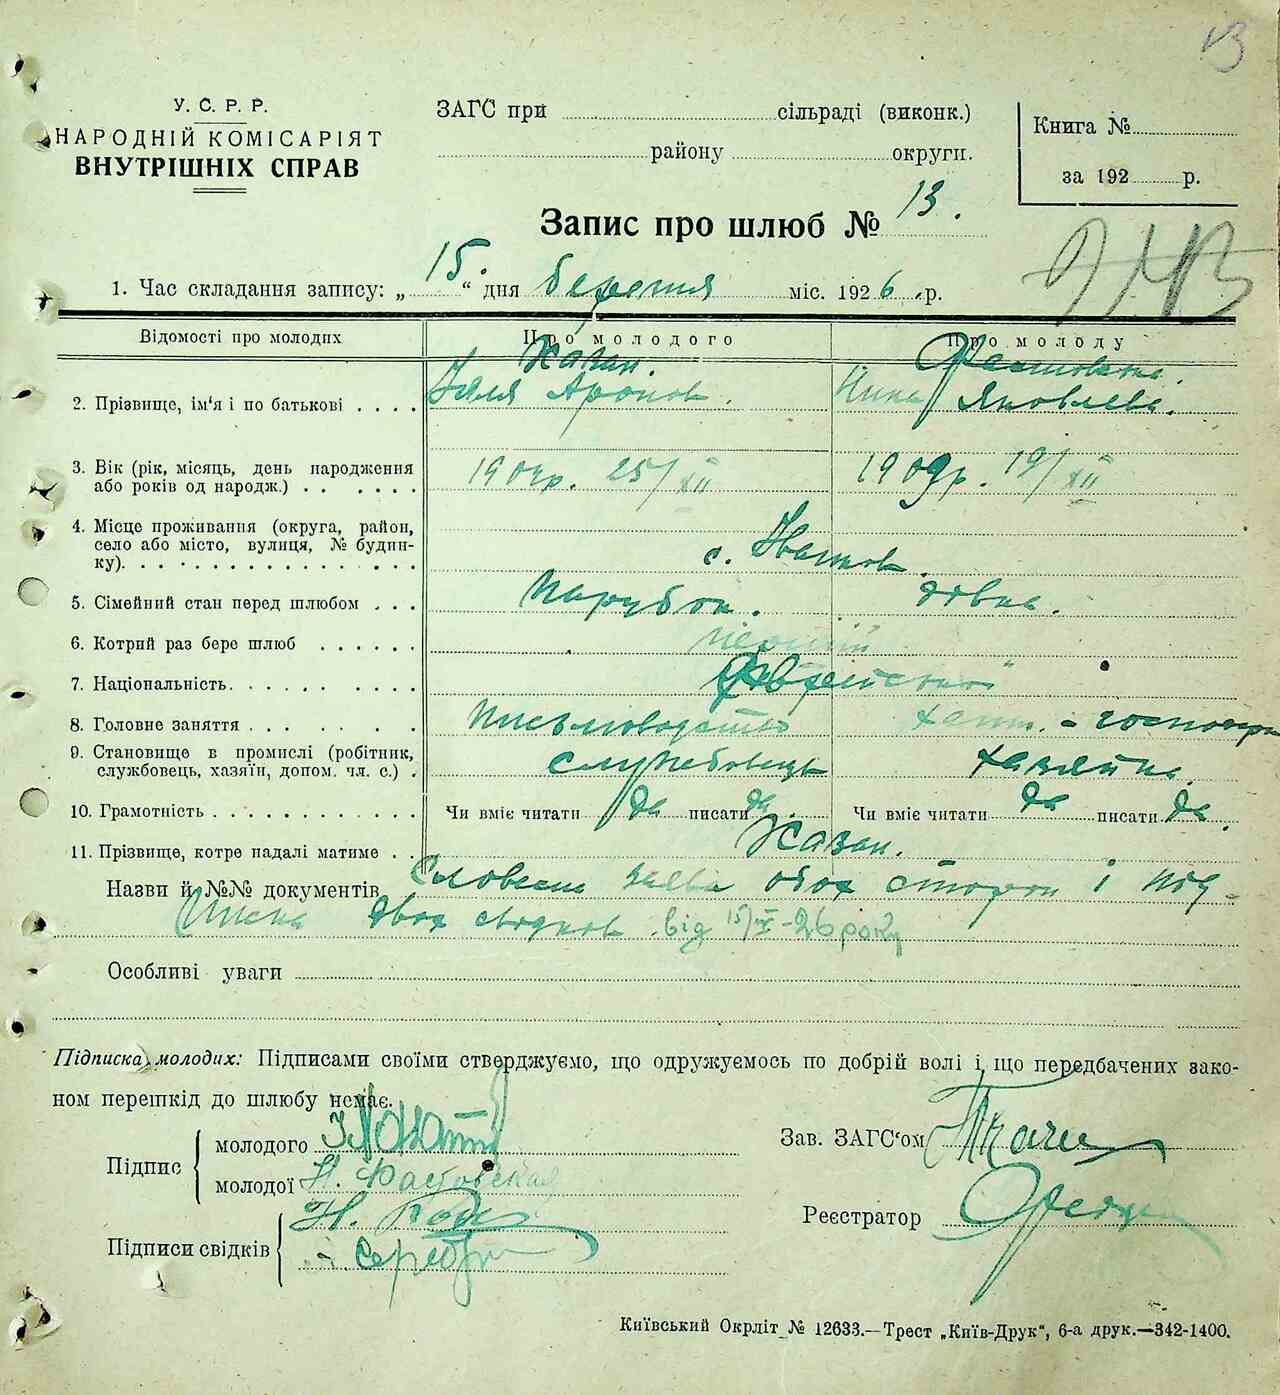 13
У. С. Р. Р.
НАРОДНІЙ КОМІСАРІЯТ
ВНУТРІШНІХ СПРАВ
ЗАГС при сільраді (виконк.)
району округи.
Книга №
за 192 р.
Запис про шлюб № 13.
1. Час складання запису: „15." дня березня міс. 1926 р.
Відомості про молодих Про молодого Про молоду
Казан. Фастовська.
2. Прізвище, ім'я і по батькові . . . . Ілля Аронов. Нина Яковлева.
3. Вік (рік, місяць, день народження
або років од народж.) . . . . . . 1904р. 25/XII 1909р. 19/XII
4. Місце проживання (округа, район,
село або місто, вулиця, № будин-
ку). с. Иванков.
5. Сімейний стан перед шлюбом . . . Парубок. дівка.
6. Котрий раз бере шлюб . . . . . . перший
7. Національність. Єврейской
8. Головне заняття письмоводство хатн. - господар
9. Становище в промислі (робітник,
службовець, хазяїн, допом. чл. с.) . службовець хазяйка.
10. Грамотність Чи вміє читати да писати да Чи вміє читати да писати да.
11. Прізвище, котре надалі матиме . . Казан.
Назви й №№ документів Словесна заява обох сторон і під-
писка двох свідков від 15/III-26 року
Особливі уваги
Підписка молодих: Підписами своїми стверджуємо, що одружуємось по добрій волі і що передбачених зако-
ном перешкід до шлюбу немає.
Підпис
молодого
молодої Н. Фастовская
Підписи свідків
Зав. ЗАГС'ом Ткач
Реєстратор
Київський Окрліт № 12633.—Трест „Київ-Друк“, 6-а друк.—342-1400.